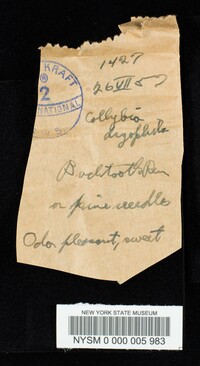 KRAFT
®
2
NATIONAL
1427
26 VII 57
Collybia
dryophila
Buck
on pine needles
Odor pleasant, sweet
NEW YORK STATE MUSEUM
NYSM 0 000 005 983